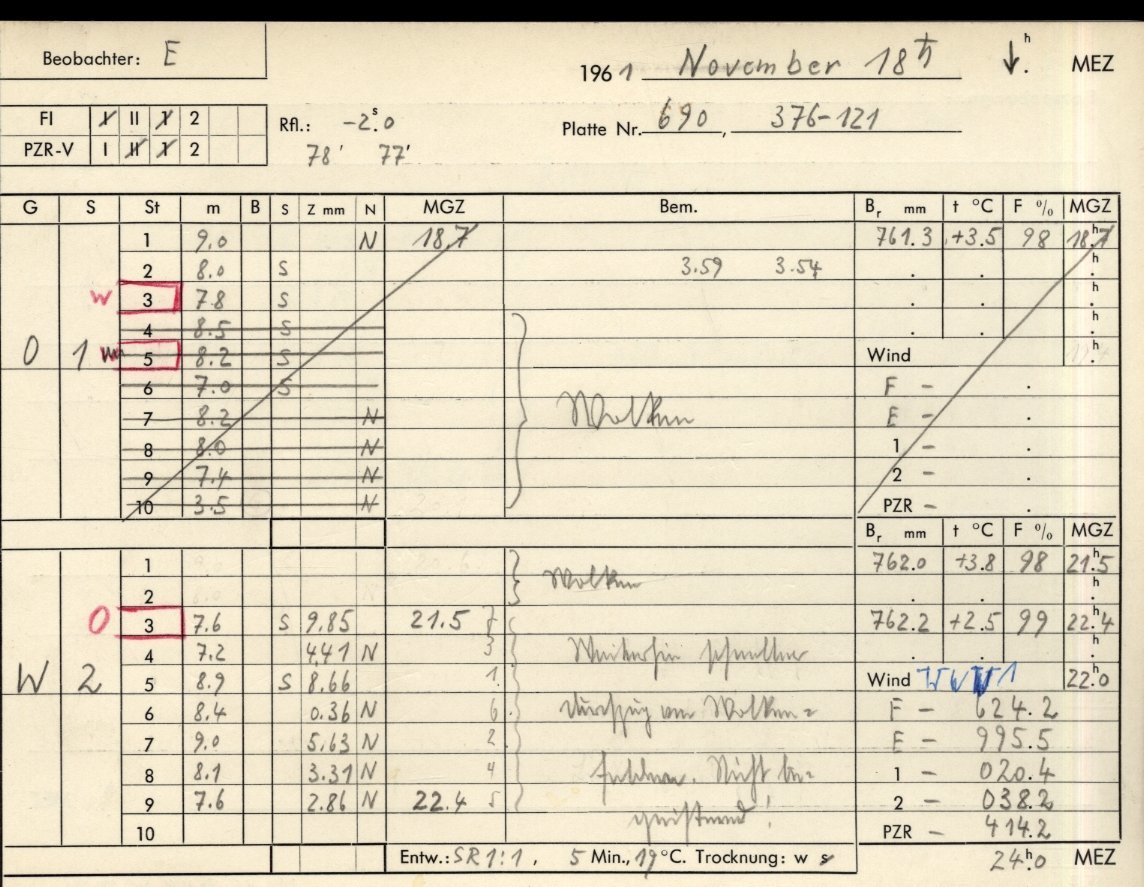 Beobachter: E
1961 November 18 ♄ ↓.h MEZ
FI I II 1 2
PZR-V I II 1 2
Rfl.: -2.s0
78' 77'
Platte Nr. 690, 376-121
G S St m B S Z mm N MGZ Bem. Br mm t °C F % MGZ
1 9.0 N 18,7 761.3 +3.5 98 18h.7
2 8.0 S 3.59 3.54 . . h.
w 3 7.8 S . . h.
4 8.5 S . . h.
O 1 w 5 8.2 S Wind h.
6 7.0 S F - .
7 8.2 N Wolken E - .
8 8.0 N 1 - .
9 7.4 N 2 - .
10 3.5 N PZR -
Br mm t °C F % MGZ
1 Wolken 762.0 +3.8 98 21h.5
2 . . h.
O 3 7.6 S 9.85 21.5 7 762.2 +2.5 99 22h.4
4 7.2 4.41 N 3 Weiterhin schneller . . h.
W 2 5 8.9 S 8.66 1. Wind WWW1 22h.0
6 8.4 0.36 N 6. Durchzug von Wolken= F - 624.2
7 9.0 5.63 N 2 E - 995.5
8 8.1 3.31 N 4 feldern. Nicht be= 1 - 020.4
9 7.6 2.86 N 22.4 5 geisternd! 2 - 038.2
10 PZR - 414.2
Entw.: SR 1:1, 5 Min., 19°C. Trocknung: w s 24h.0 MEZ